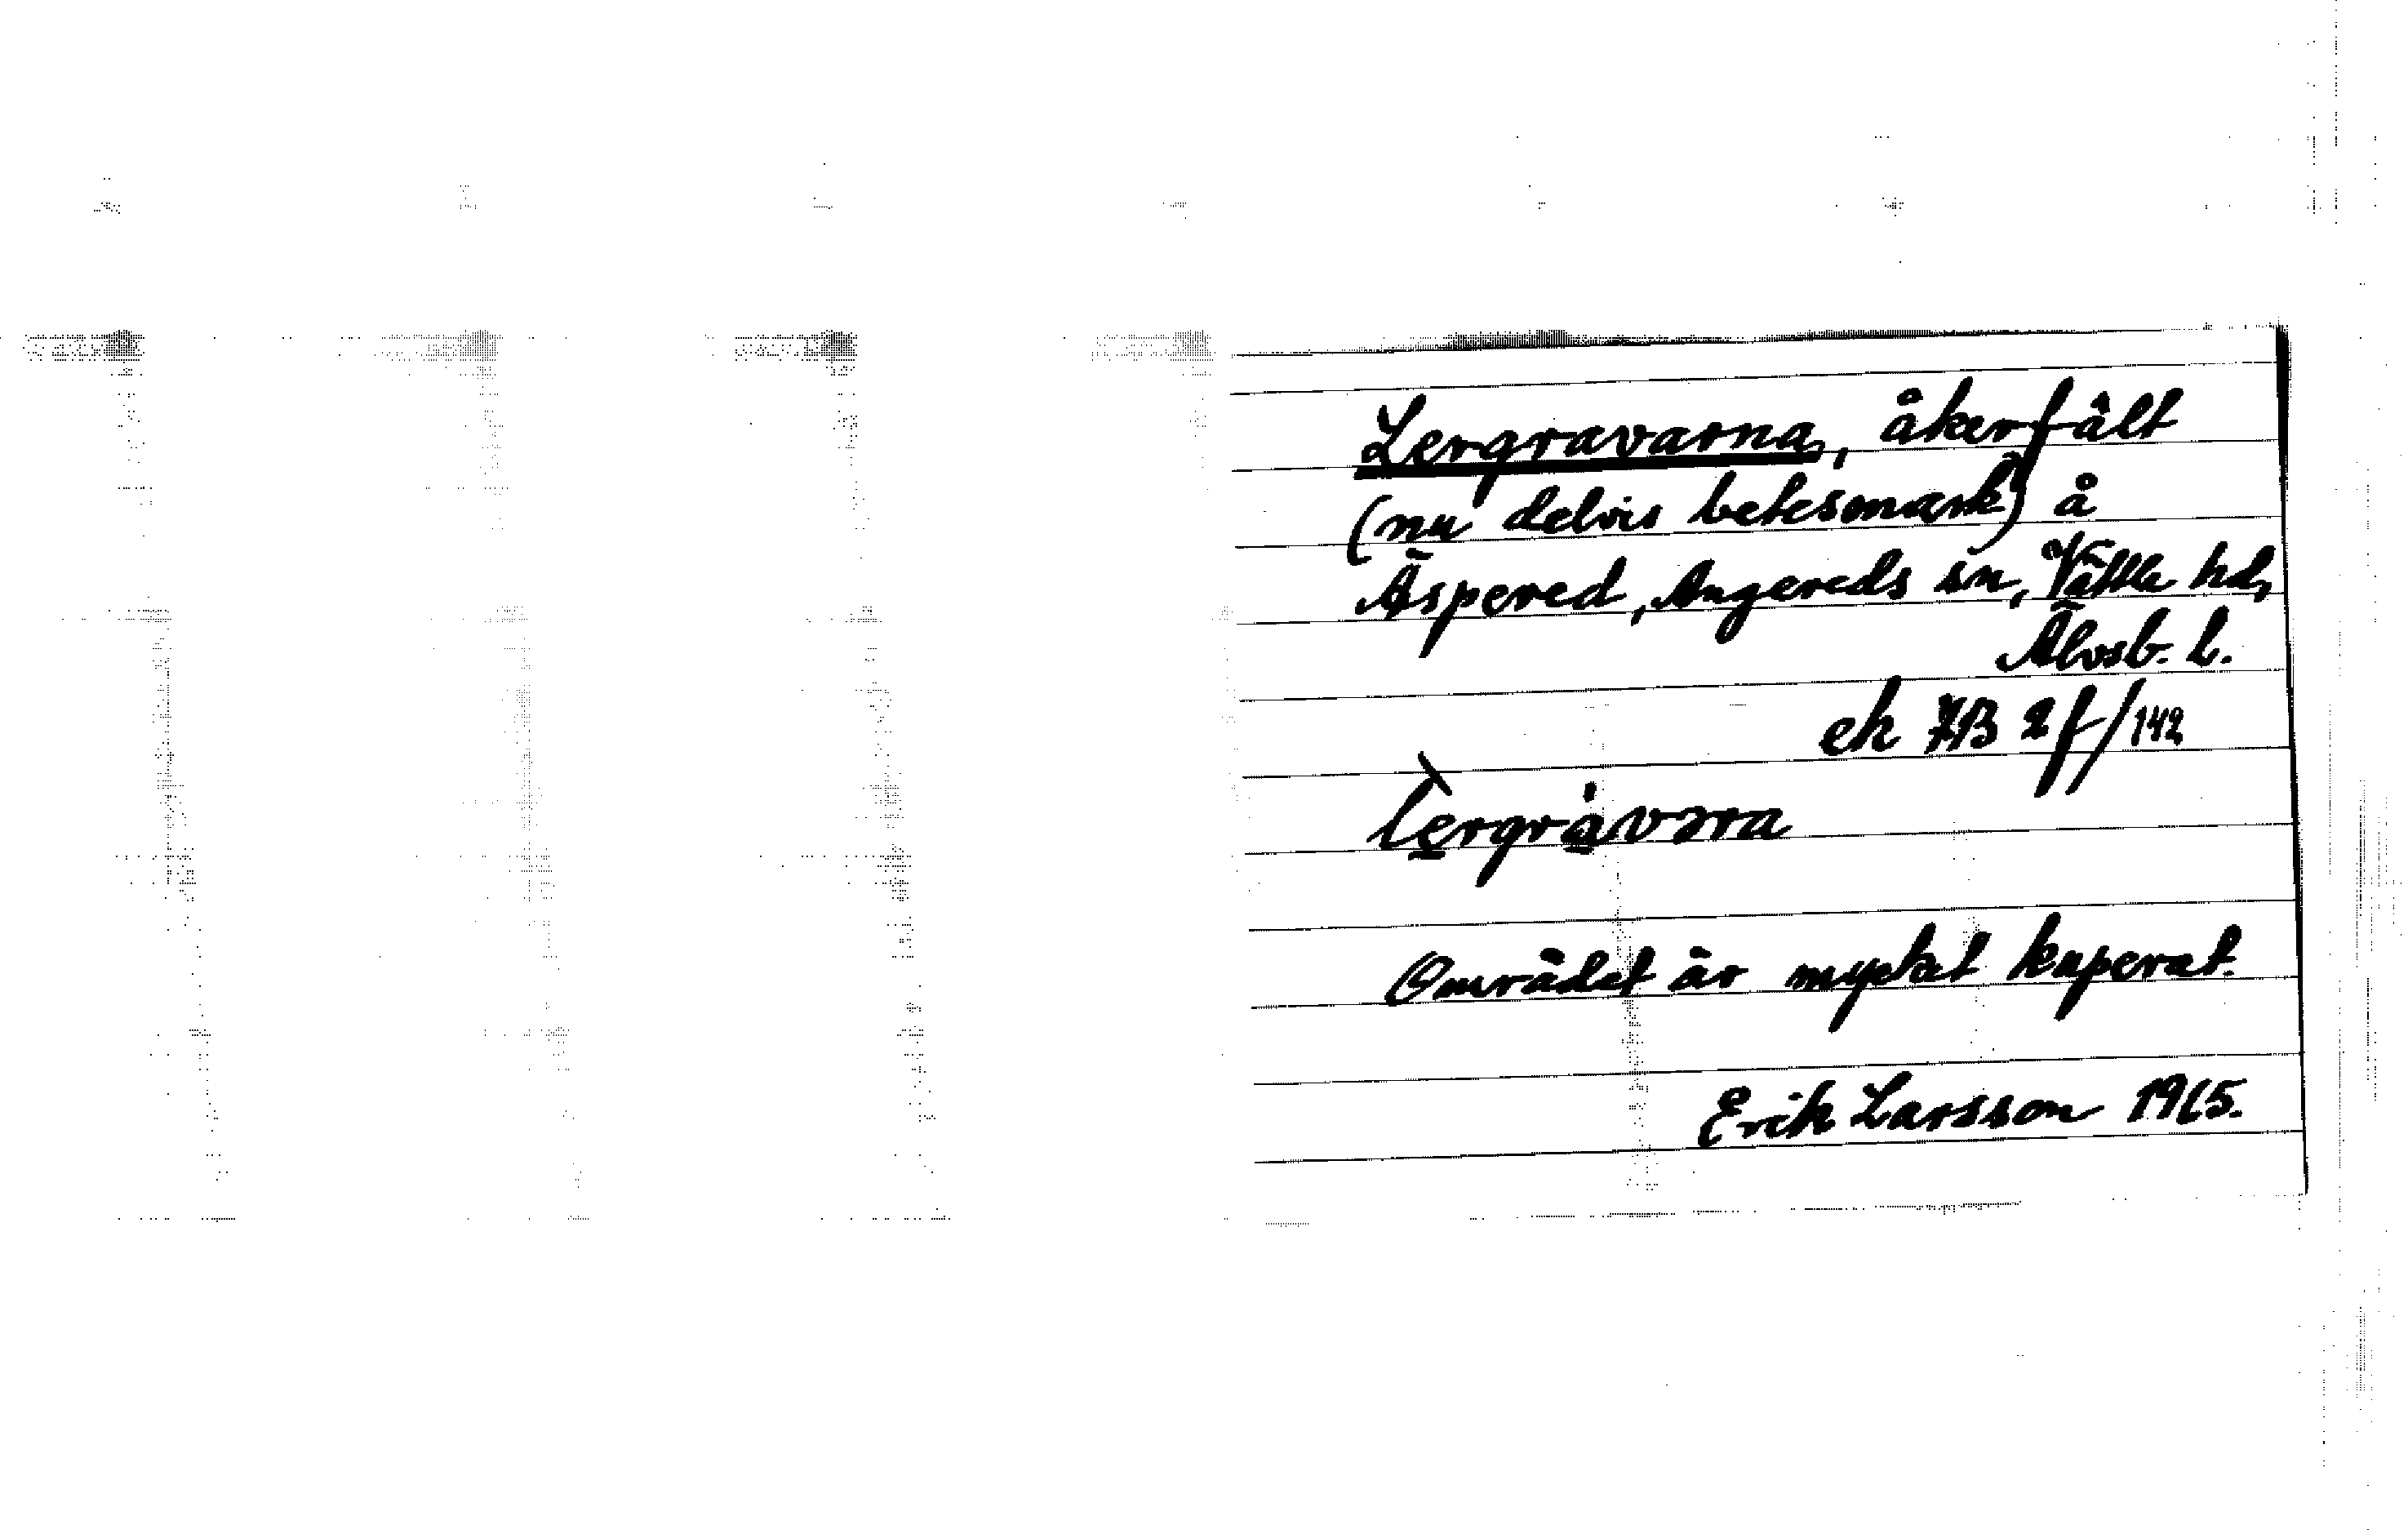 Lergravarna, åkerfält
(nu delvis betesmark) å
Äspered, Angereds sn, Vättle hd,
Älvsb. l.
ek 7B 2f/142
lèrgràvəra
Området är mycket kuperat.
Erik Larsson 1965.